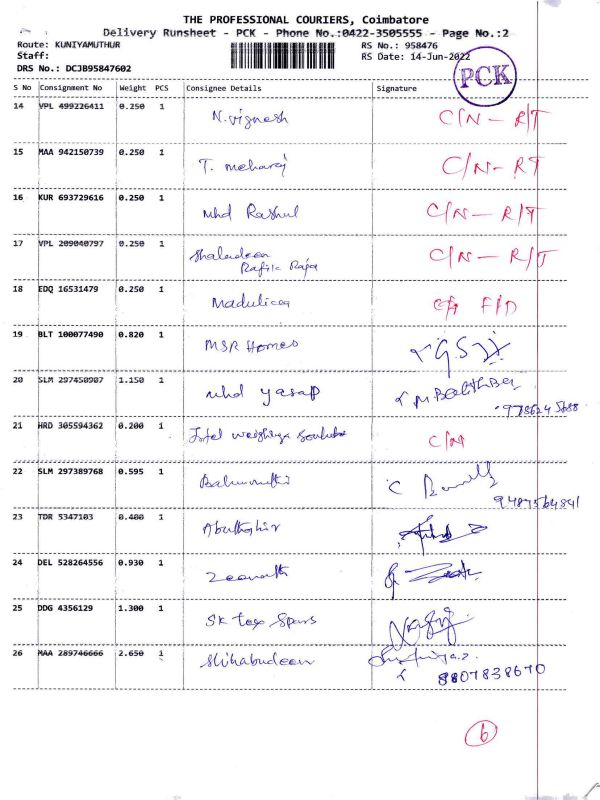 THE PROFESSIONAL COURIERS, Coimbatore
Delivery Runsheet - PCK - Phone No.:0422-3505555 - Page No.:2
Route: KUNIYAMUTHUR
RS No.: 958476
Staff:
RS Date: 14-Jun-2022
DRS No.: DCJB95847602
PCK
S No Consignment No Weight PCS Consignee Details Signature
14 VPL 499226411 0.250 1 N. vignesh C/N - R/T
15 MAA 942150739 0.250 1 T. meharaj C/N - RT
16 KUR 693729616 0.250 1 Mhd Rashul C/N - R/T
17 VPL 209040797 0.250 1 C/N - R/T
Rafik Raja
18 EDQ 16531479 0.250 1 F/D
19 BLT 100077490 0.820 1 MSR Homes
20 SLM 297450907 1.150 1 Mhd yasap
21 HRD 305594362 0.200 1 C/N
22 SLM 297389768 0.595 1
23 TDR 5347103 0.400 1
24 DEL 528264556 0.930 1 Zeenath
25 DDG 4356129 1.300 1 SK
26 MAA 289746666 2.650 1 Shihabudeen
8807838670
6